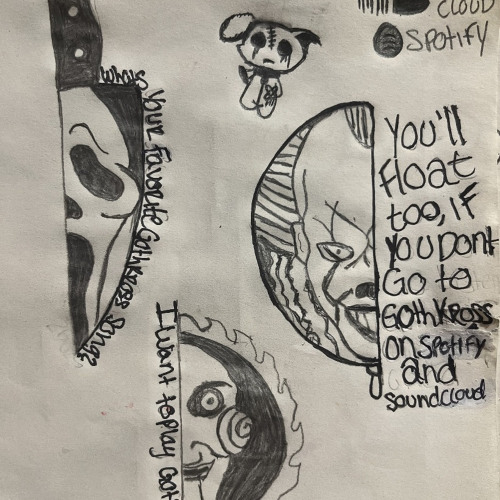 CLOUD
SPOTIFY
Whats your favorite Gothkross Song?
You'll
float
too, IF
you Dont
Go to
GOTHKROSS
on SPOTIFY
and
soundcloud
I want to play Got